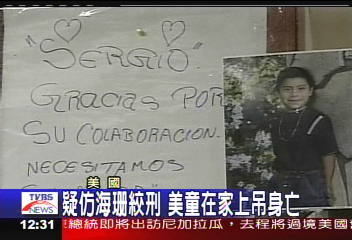 "SERGIO"
GRACIAS POR
SU COLABORACION.
NECESITAMOS
美國
疑仿海珊絞刑 美童在家上吊身亡
TVBS
NEWS
12:31
總統即將出訪尼加拉瓜，去程將過境美國